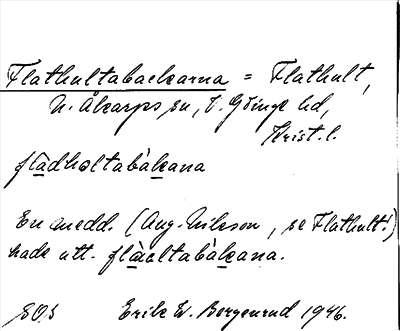 Flathultabackarna = Flathult,
N. Åkarps sn, V. Göinge hd,
Krist. l.
flạdhọltabàḳana
En medd. (Aug. Nilsson, se Flathult!)
hade utt. flạ̀oltabàḳana.
SOS Erik W. Borgenrud 1946.